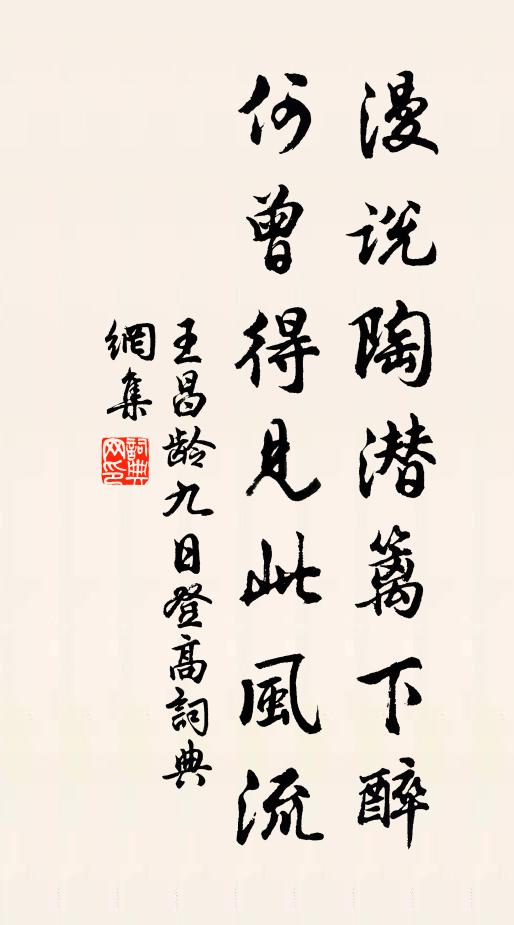 漫说陶潜篱下醉
何曾得見此風流
王昌龄九日登高詞典
網集
詞典网印